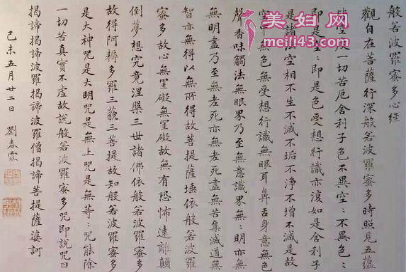 般若波羅蜜多心經
觀自在菩薩行深般若波羅蜜多時照見五蘊
空度一切苦厄舍利子色不異空:不異色:
是空:即是色受想行識亦復如是舍利子
是諸法空相不生不滅不垢不淨不增不減是故
空中無色無受想行識無眼耳鼻舌身意無色
聲香味觸法無眼界乃至無意識界無:明亦無
無明盡乃至無老死亦無老死盡無苦集滅道無
智亦無得以無所得故菩提薩埵依般若波羅
蜜多故心無罣礙無罣礙故無有恐怖遠離顛
倒夢想究竟涅槃三世諸佛依般若波羅蜜多
故得阿耨多羅三藐三菩提故知般若波羅蜜多
是大神咒是大明咒是無上咒是無等:咒能除
一切苦真實不虛故說般若波羅蜜多咒即說咒曰
揭諦揭諦波羅揭諦波羅僧揭諦菩提薩婆訶
己未五月廿二日 劉春霖
美妇网
www.meifu43.com